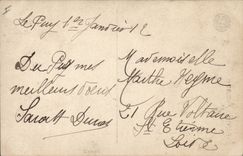 Le Puy 1er Janvier 12
Du Puy mes
meilleurs voeux
Mademoiselle
Marthe Veyme
21 Rue Voltaire
St Etienne
Loire